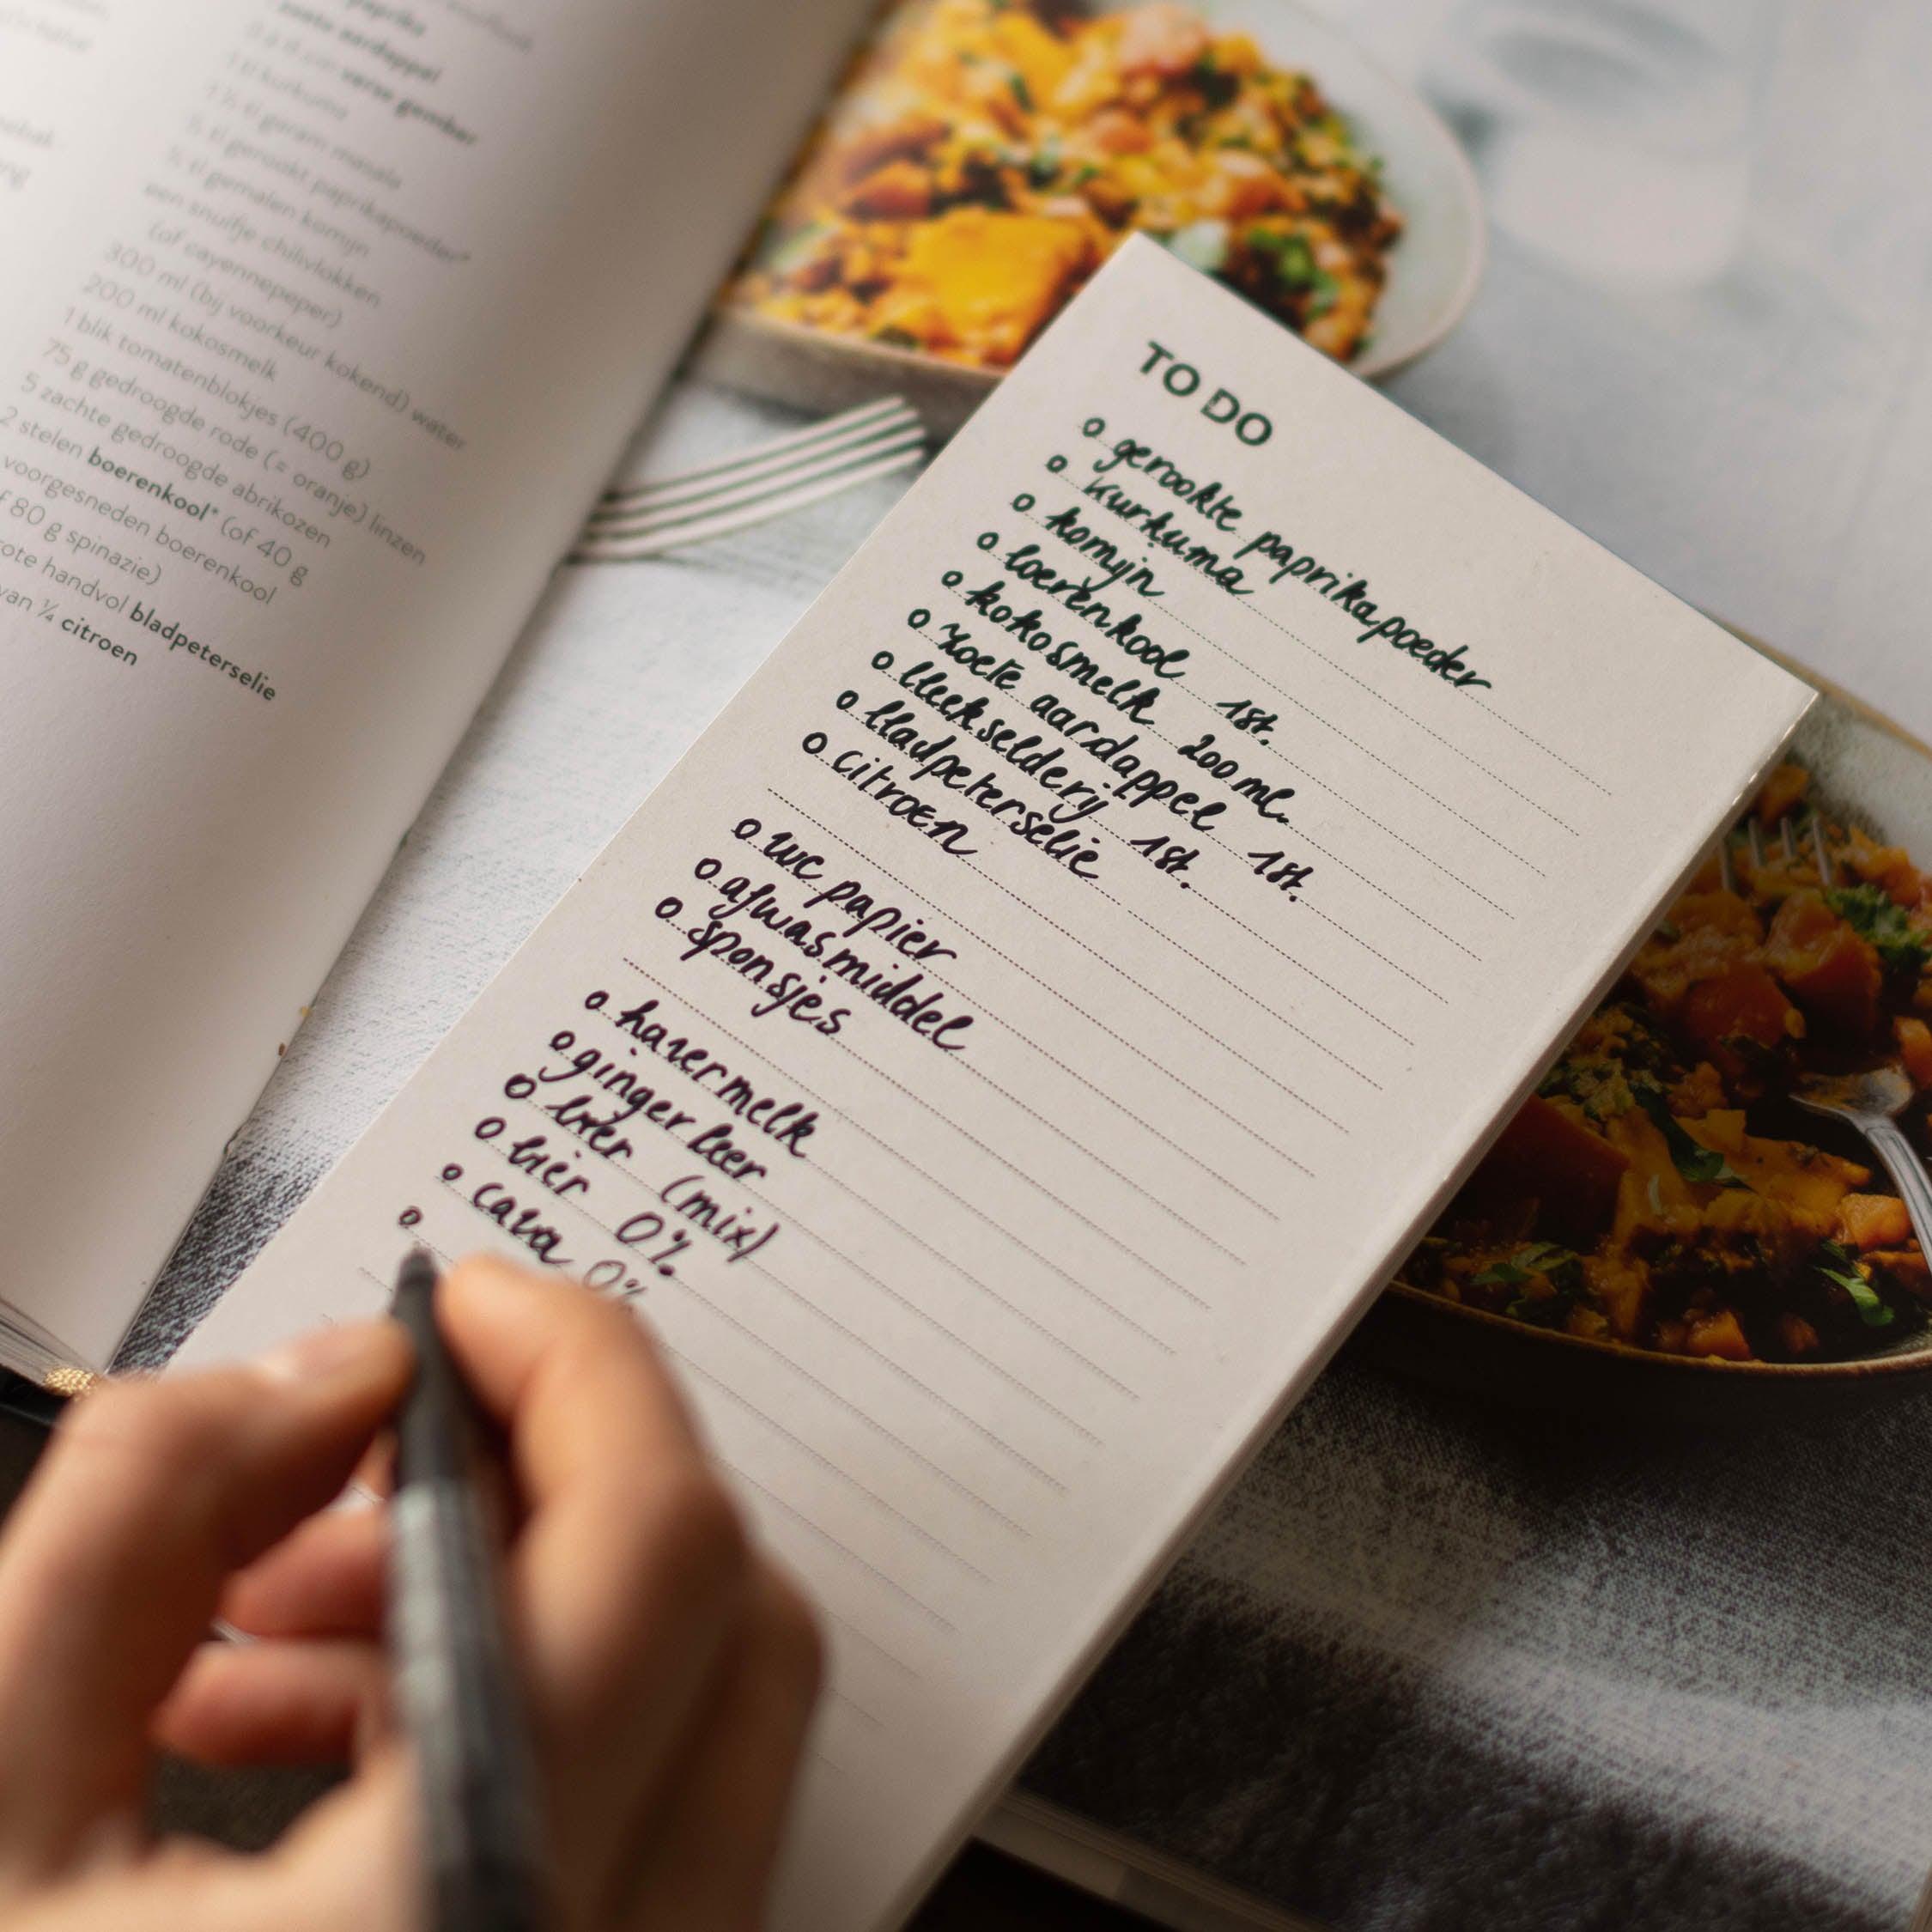 paprika
zoete aardappel
verse gember
1 tl kurkuma
1 ½ tl garam masala
½ tl gerookt paprikapoeder*
½ tl gemalen komijn
een snufje chilivlokken
(of cayennepeper)
300 ml (bij voorkeur kokend) water
200 ml kokosmelk
1 blik tomatenblokjes (400 g)
75 g gedroogde rode (= oranje) linzen
5 zachte gedroogde abrikozen
2 stelen boerenkool* (of 40 g
voorgesneden boerenkool
80 g spinazie)
handvol bladpeterselie
van ¼ citroen
TO DO
o gerookte paprikapoeder
o kurkuma
o komijn
o boerenkool 1st.
o kokosmelk 200 ml.
o zoete aardappel 1st.
o bleekselderij 1st.
o bladpeterselie
o citroen
o wc papier
o afwasmiddel
o sponsjes
o havermelk
o gingerbeer
o bier (mix)
o bier 0%
o cava 0%
o